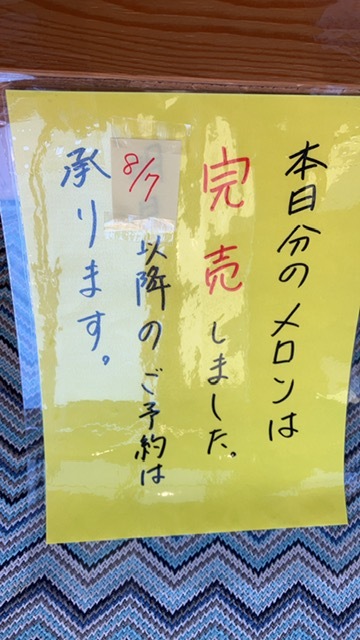 本日分のメロンは
完売しました。
8/7以降のご予約は
承ります。